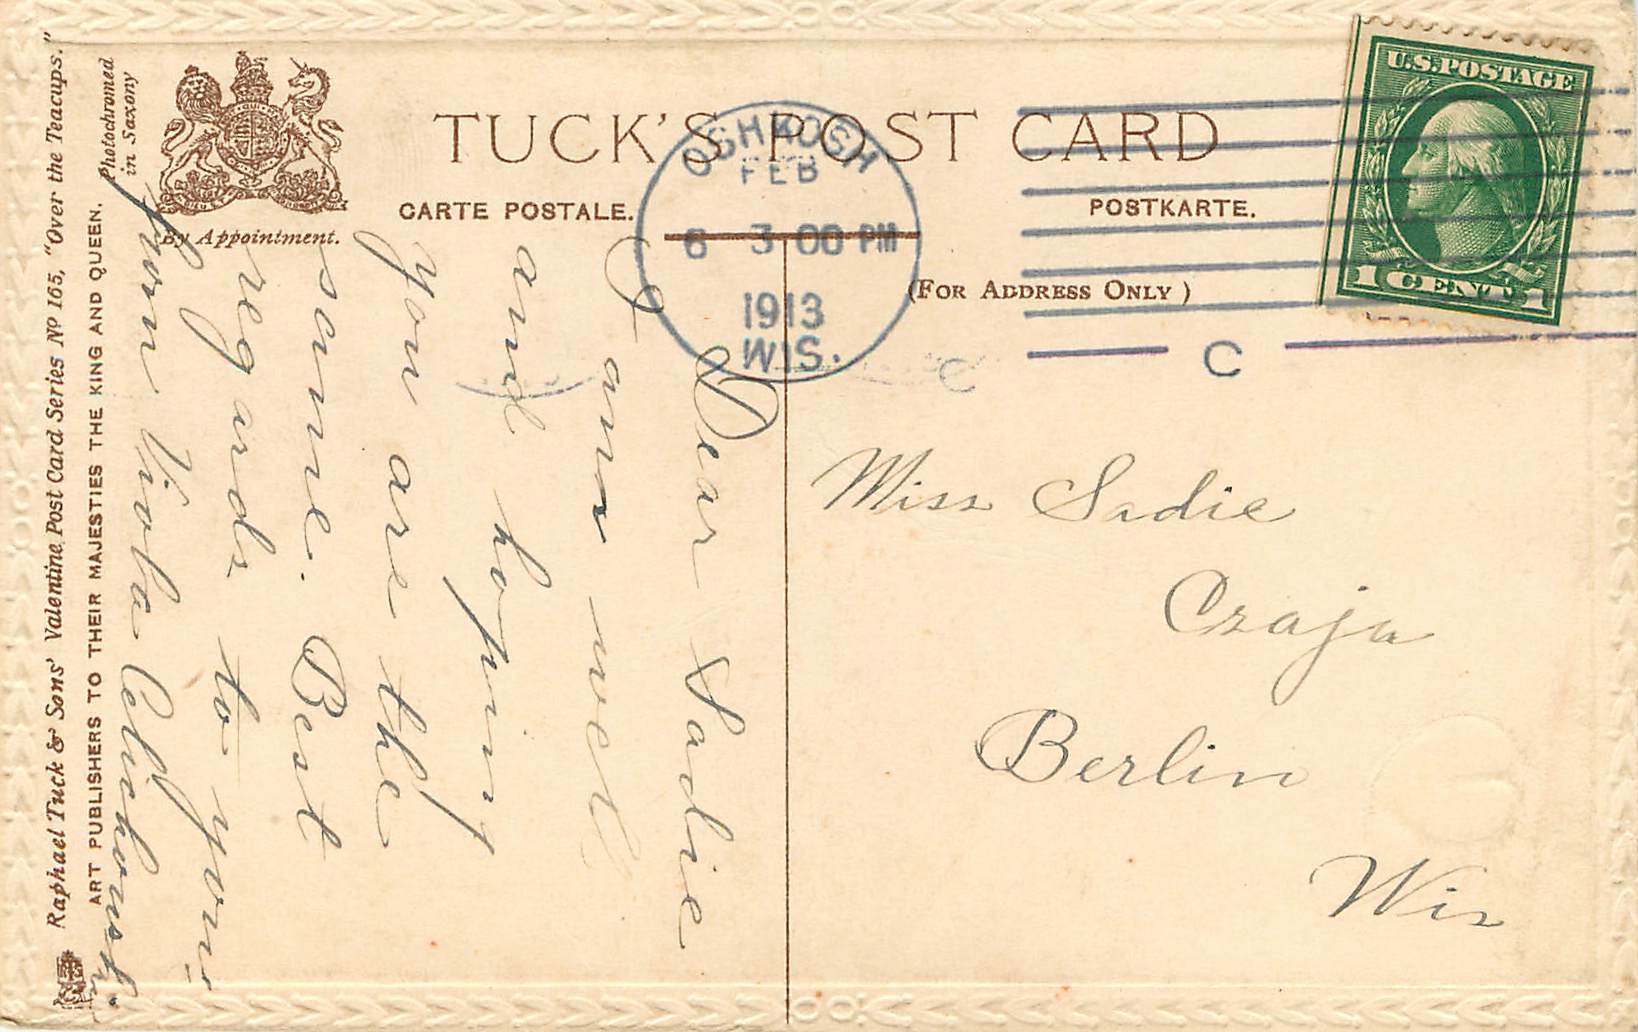 Raphael Tuck & Sons' Valentine Post Card Series Nº 165, "Over the Teacups."
ART PUBLISHERS TO THEIR MAJESTIES THE KING AND QUEEN.
Photochromed
in Saxony
By Appointment.
TUCK'S POST CARD
CARTE POSTALE.
POSTKARTE.
(FOR ADDRESS ONLY)
OSHKOSH
FEB
6 3 00 PM
1913
WIS.
C
U.S. POSTAGE
1 CENT 1
Dear Sadie
I am well
and hoping
you are the
same. Best
regards to you
from Viola
Miss Sadie
Czaja
Berlin
Wis